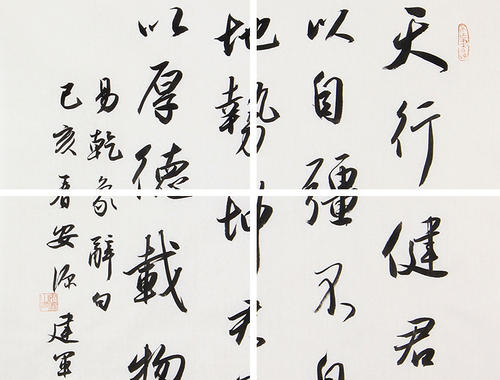 天行健君
以自彊不
地勢坤君
以厚德載物
易乾象辭句
己亥春安源建軍